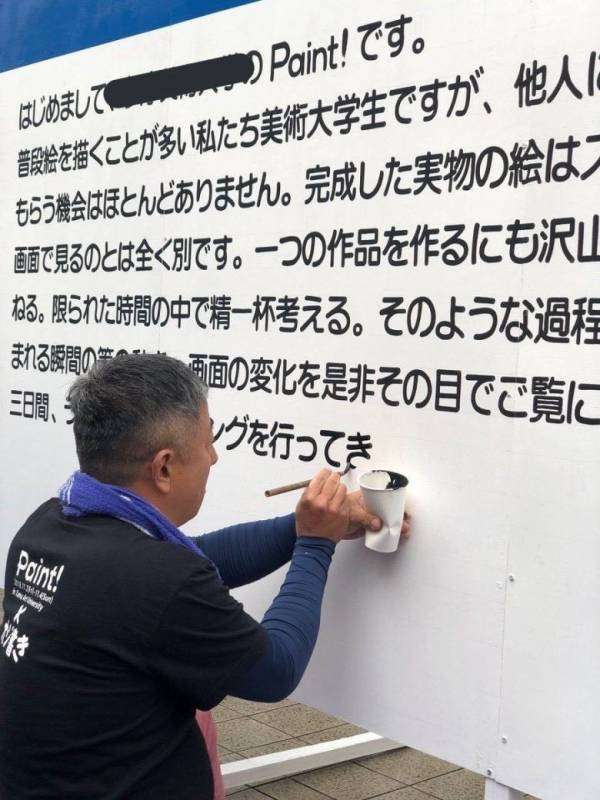 はじめまして のPaint!です。
普段絵を描くことが多い私たち美術大学生ですが、他人に
もらう機会はほとんどありません。完成した実物の絵はス
画面で見るのとは全く別です。一つの作品を作るにも沢山
ねる。限られた時間の中で精一杯考える。そのような過程
まれる瞬間の筆の動き、画面の変化を是非その目でご覧に
三日間、 ングを行ってき
Paint!
Tama Art University
×
書き